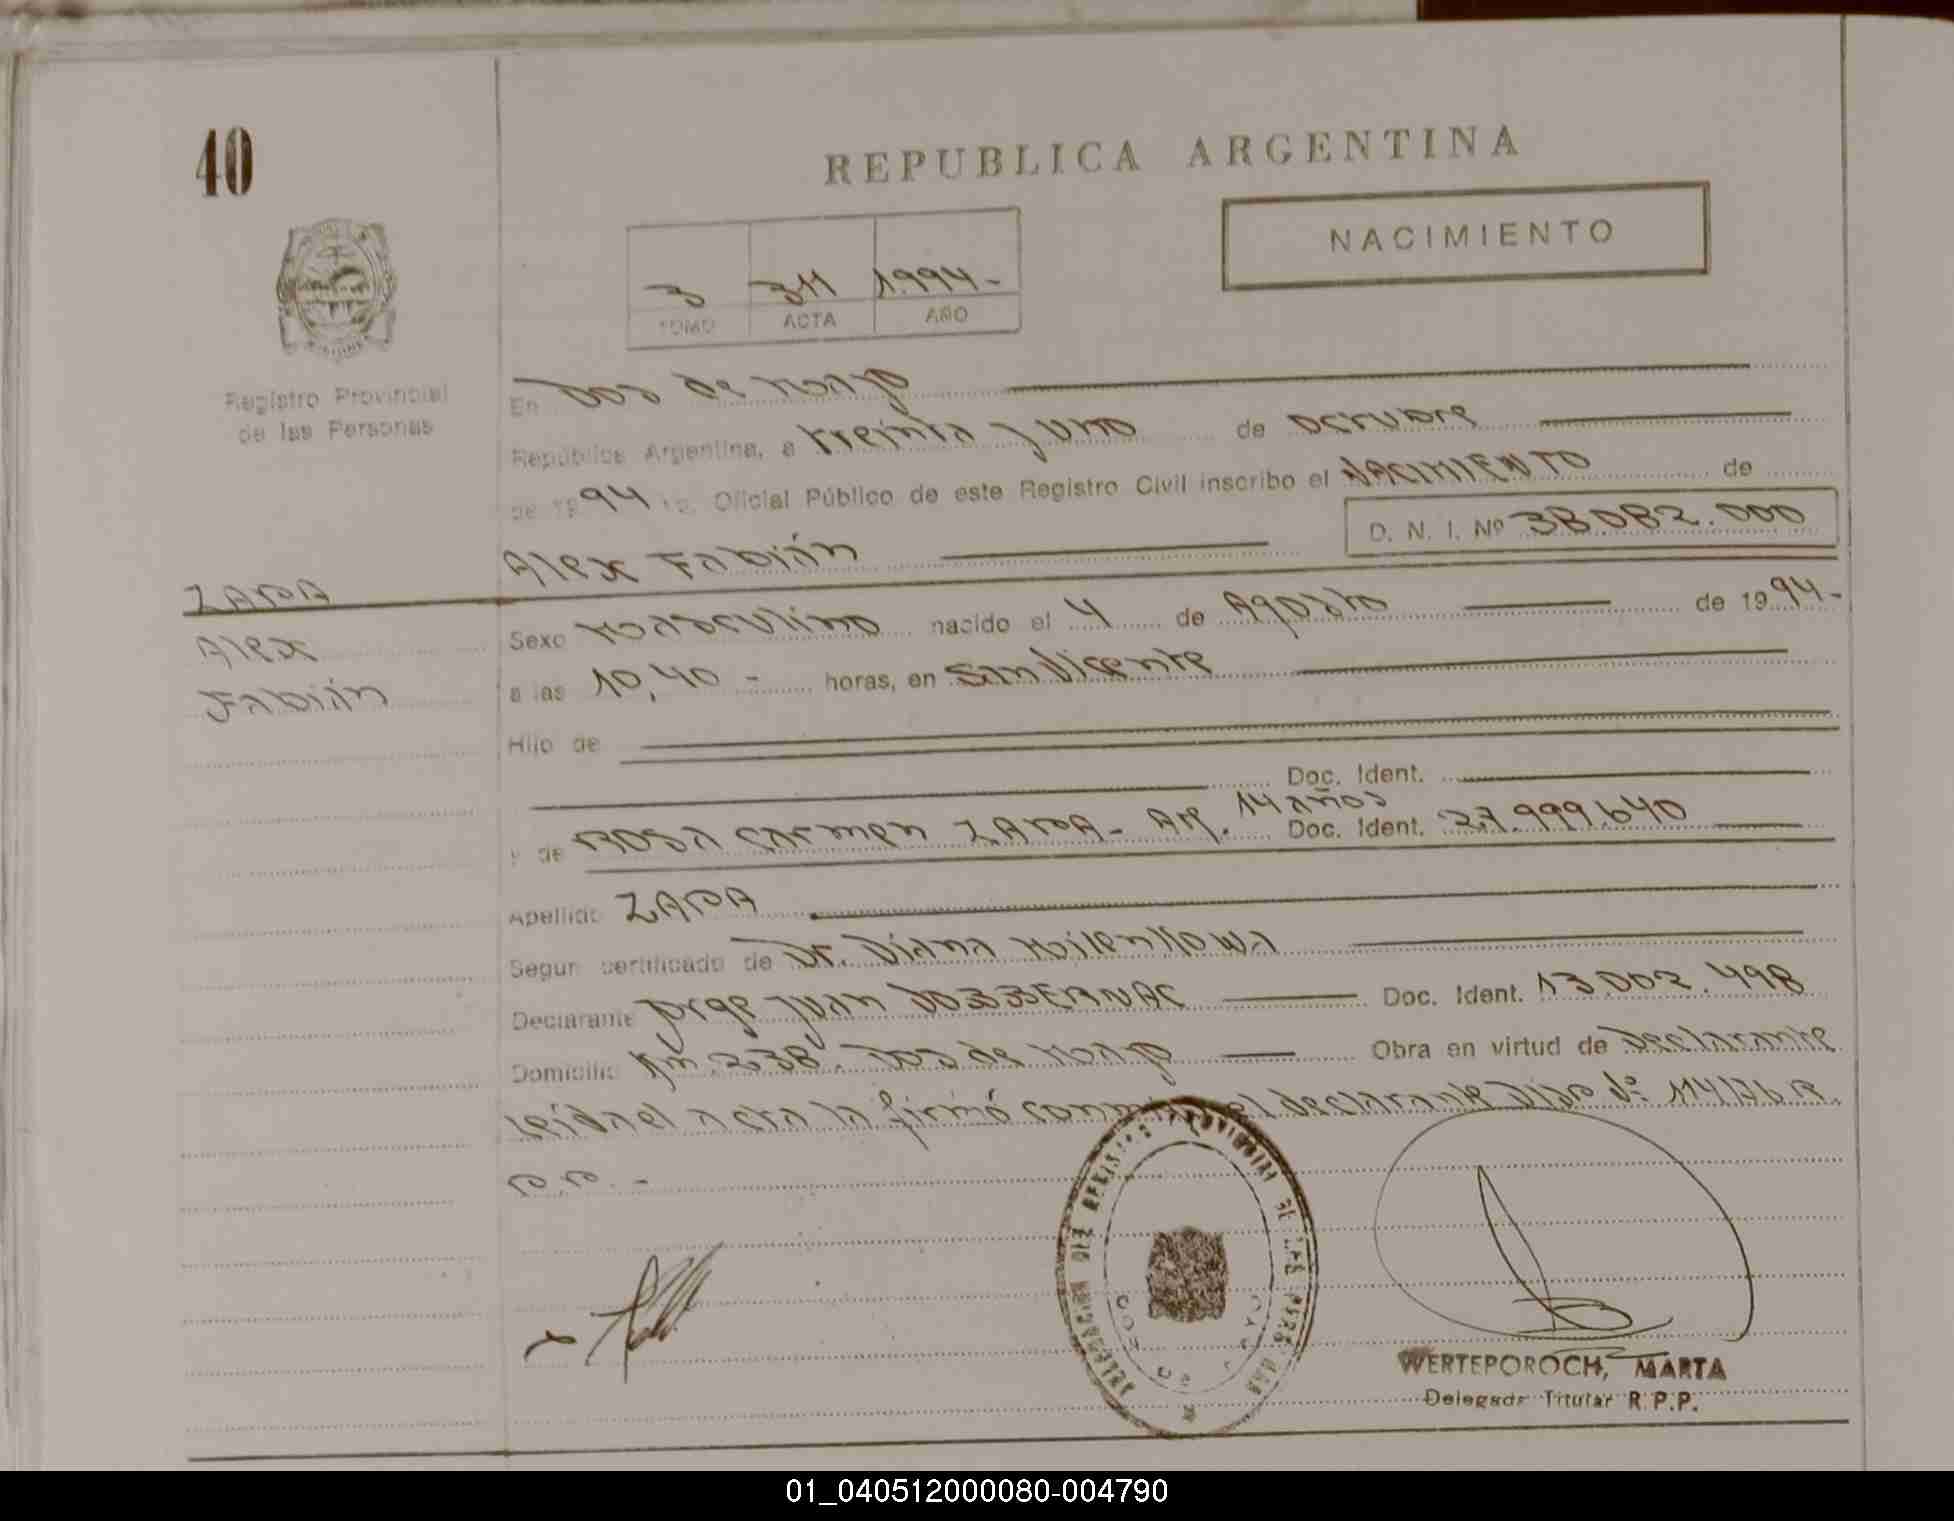 40
REPUBLICA ARGENTINA
NACIMIENTO
3 311 1994-
TOMO ACTA AÑO
Registro Provincial
de las Personas
En Dos de Mayo
República Argentina, a treinta y uno de octubre
de 1994 yo, Oficial Público de este Registro Civil inscribo el NACIMIENTO de
D. N. I. Nº 38.082.000
Alex Fabián
ZAPA
Alex
Fabián
Sexo Masculino nacido el 4 de Agosto de 1994-
a las 10,40 - horas, en San Vicente
Hijo de
Doc. Ident.
y de Rosa Carmen ZAPA- Arg. 14 años Doc. Ident. 27.999.640
Apellido ZAPA
Segun certificado de Dr. Diana
Declarante Jorge Juan Doc. Ident. 13.002.498
Domicilio Km. 238. Dos de Mayo Obra en virtud de Declarante
Leída el acta la firmó conmigo el declarante Dispo Nº 114/76 R.
P.P. -
DELEGACION DEL REGISTRO PROVINCIAL DE LAS PERSONAS
WERTEPOROCH, MARTA
Delegada Titular R.P.P.
01_040512000080-004790